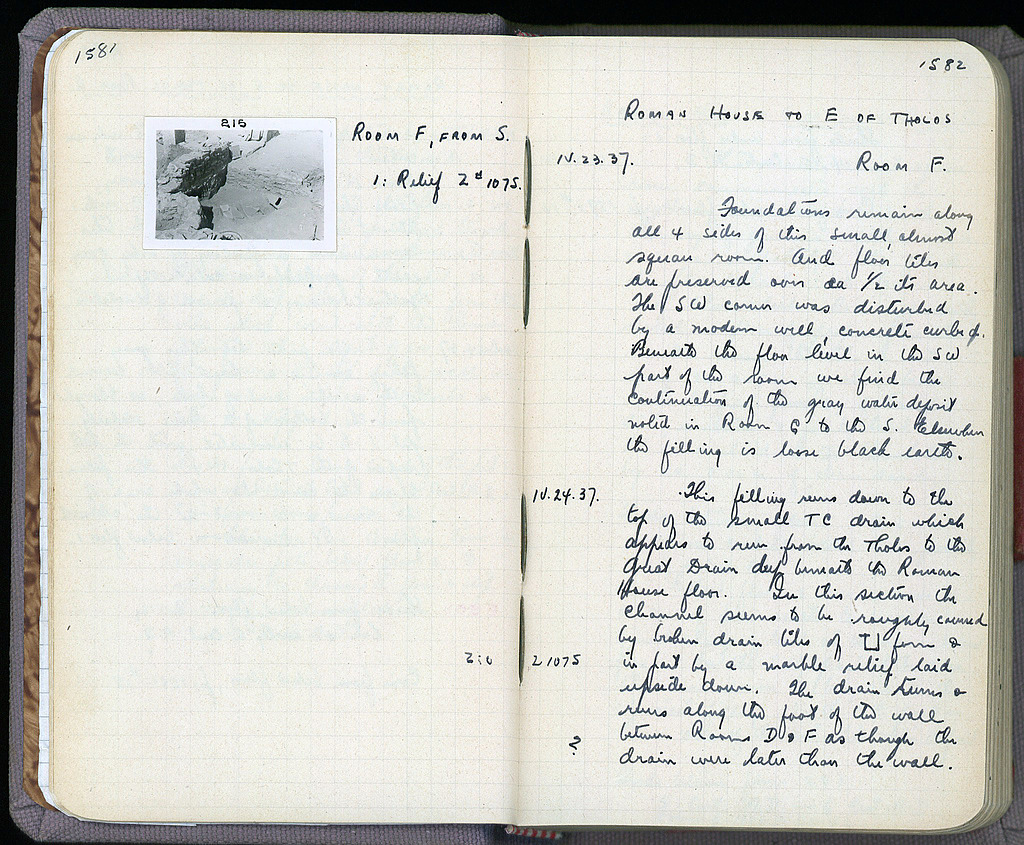 1581
815
ROOM F, FROM S.
1: Relief Σª 1075.
1582
ROMAN HOUSE TO E OF THOLOS
IV.23.37.
ROOM F.
Foundations remain along
all 4 sides of this small, almost
square room. And floor tiles
are preserved over ca 1/2 its area.
The SW corner was disturbed
by a modern well, concrete curbed.
Beneath the floor level in the SW
part of the room we find the
continuation of the gray water deposit
noted in Room G to the S. Elsewhere
the filling is loose black earth.
IV.24.37.
This filling runs down to the
top of the small TC drain which
appears to run from the Tholos to the
Great Drain deep beneath the Roman
House floor. In this section the
channel seems to be roughly covered
by broken drain tiles of form &
in part by a marble relief laid
Σ 1075
upside down. The drain turns &
runs along the foot of the wall
between Rooms D & F as though the
?
drain were later than the wall.